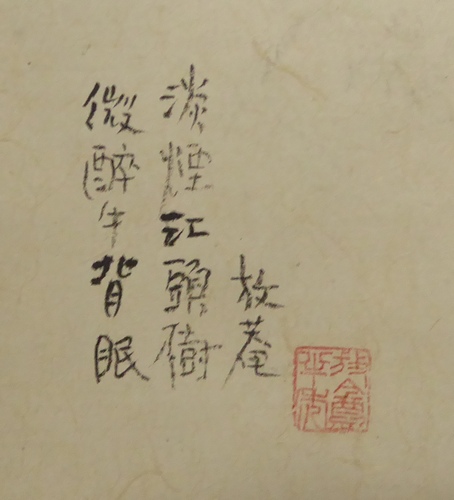 微醉牛背眠
淡煙江頭樹
放菴